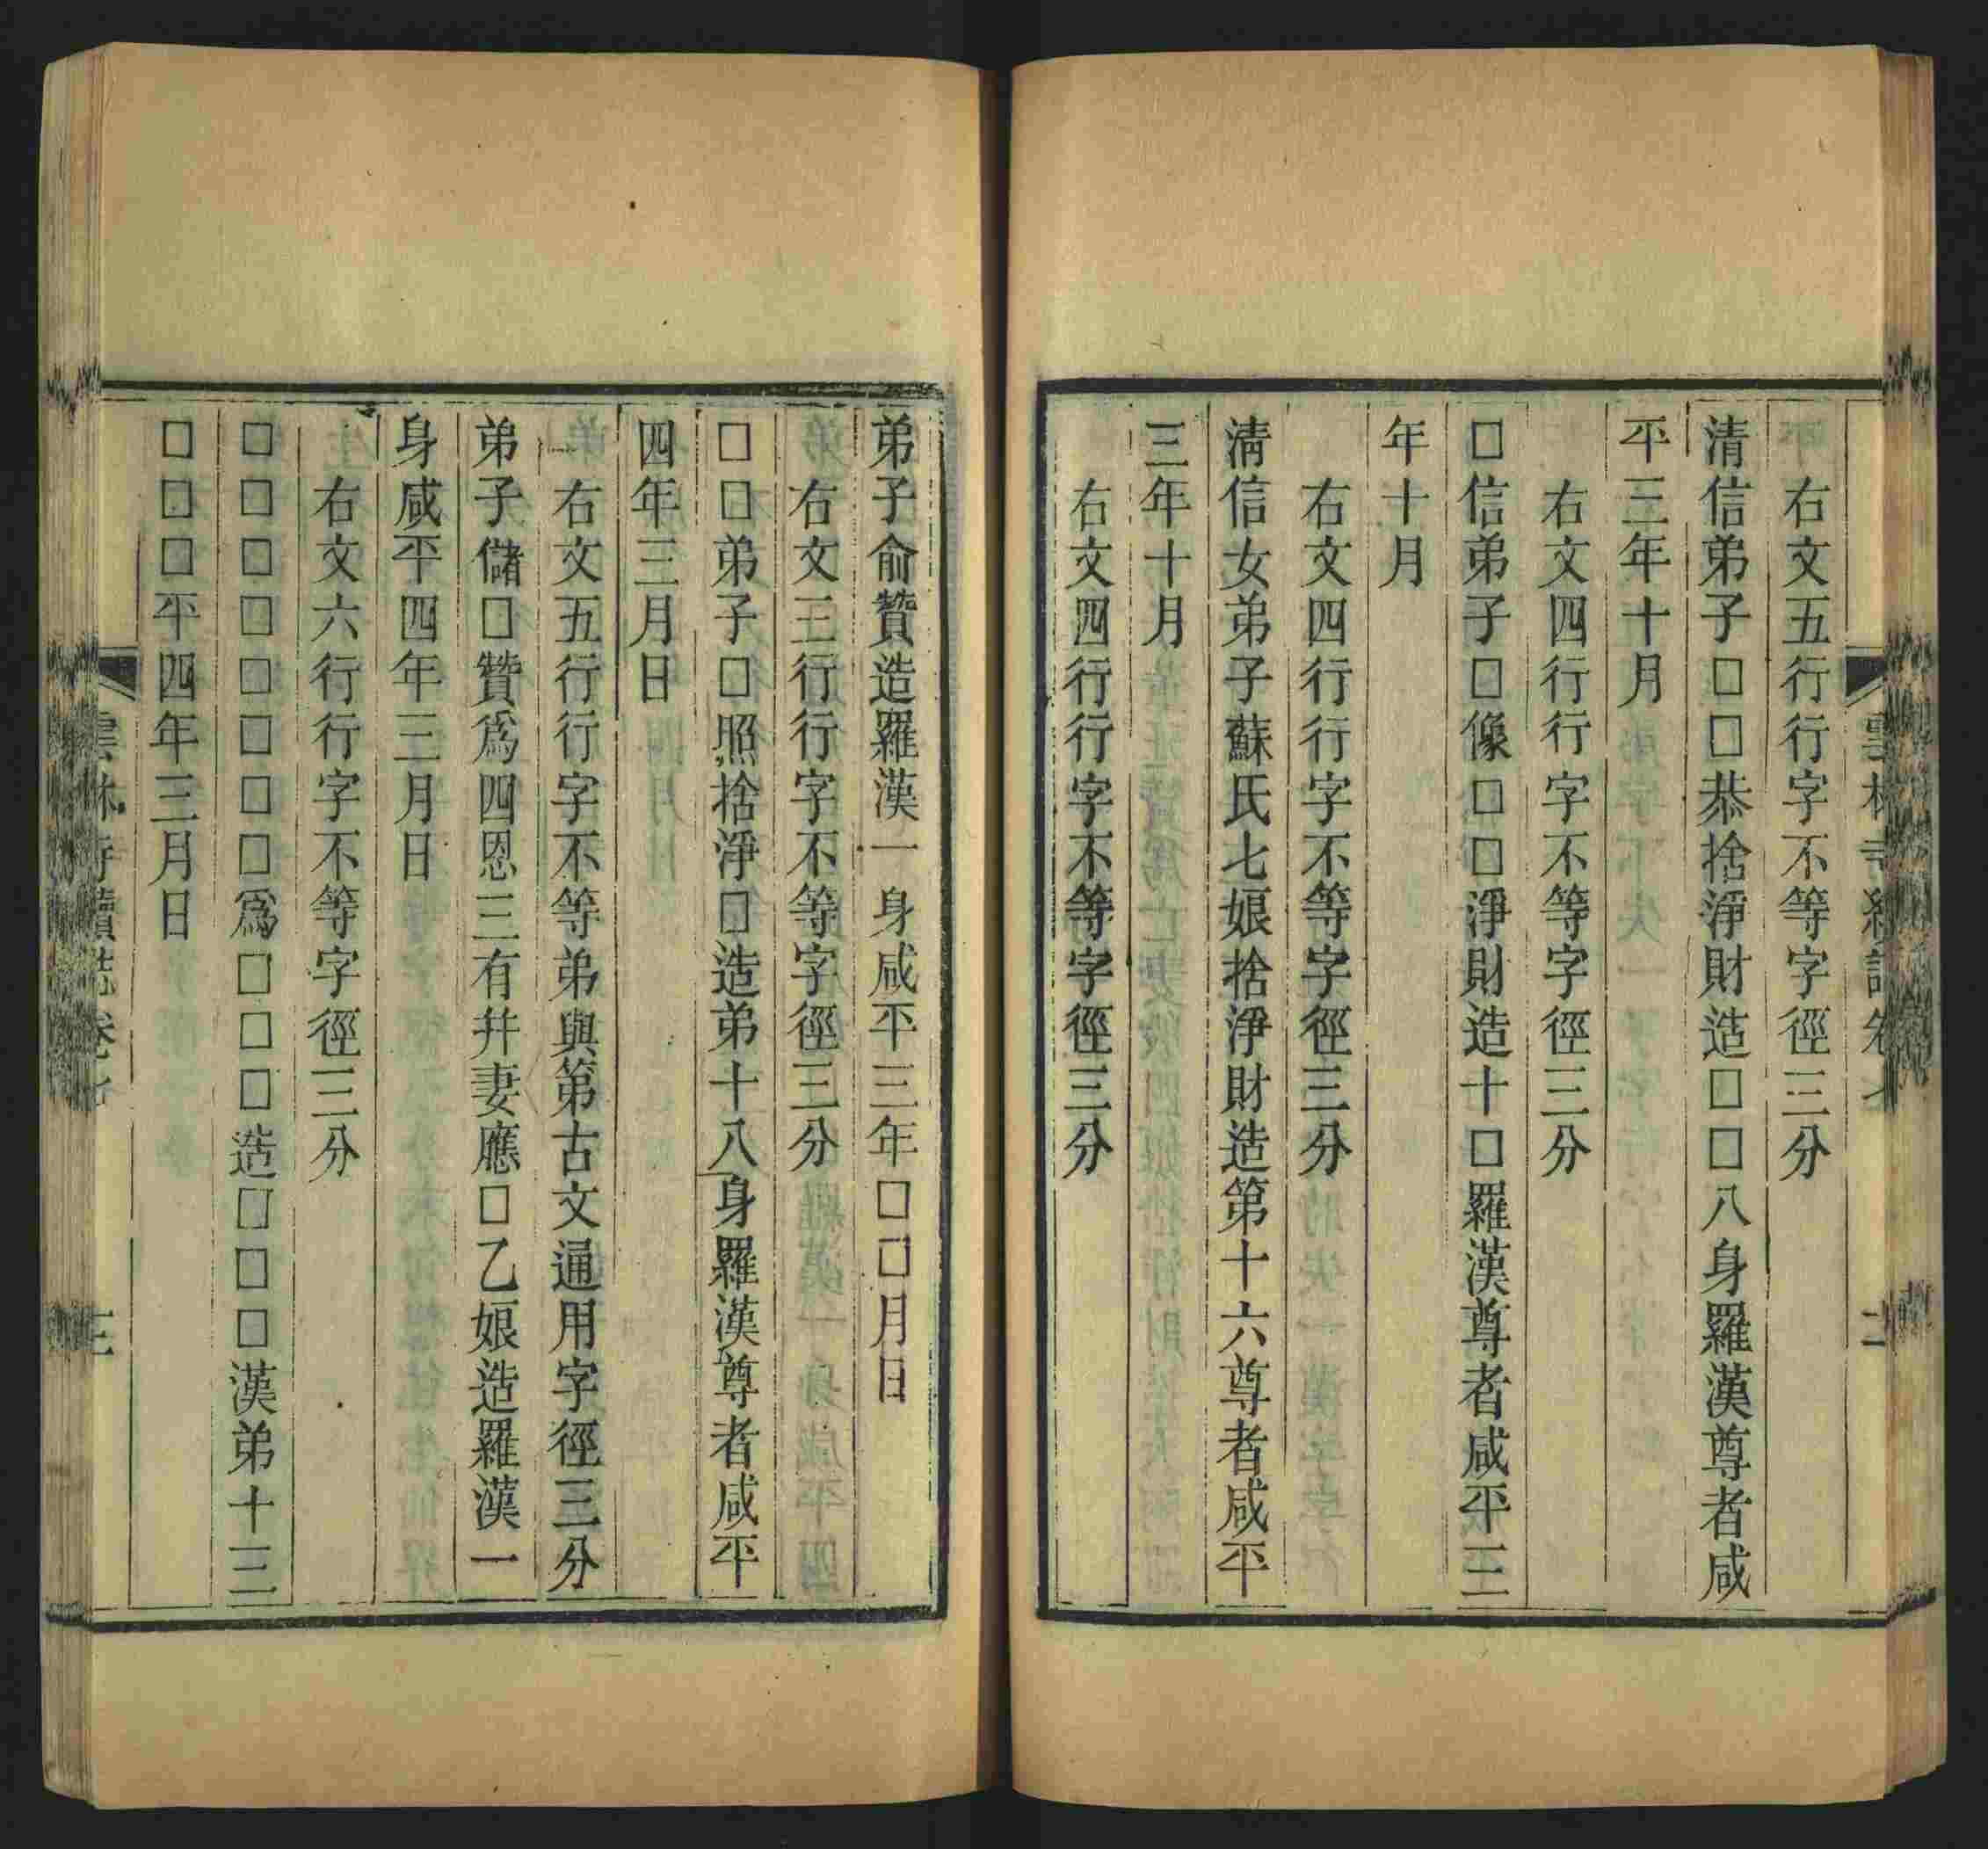 右文五行行字不等字徑三分
清信弟子□□恭捨淨財造□□八身羅漢尊者咸
平三年十月
右文四行行字不等字徑三分
□信弟子□像□□淨財造十□羅漢尊者咸平三
年十月
右文四行行字不等字徑三分
淸信女弟子蘇氏七娘捨淨財造第十六尊者咸平
三年十月
右文四行行字不等字徑三分
弟子俞贊造羅漢一身咸平三年□□月日
右文三行行字不等字徑三分
□□弟子□照捨淨□造弟十八身羅漢尊者咸平
四年三月日
右文五行行字不等弟與第古文通用字徑三分
弟子儲□贊爲四恩三有并妻應□乙娘造羅漢一
身咸平四年三月日
右文六行行字不等字徑三分
□□□□□□□□爲□□□造□□□漢弟十三
□□□平四年三月日
雲林寺續誌卷七
三